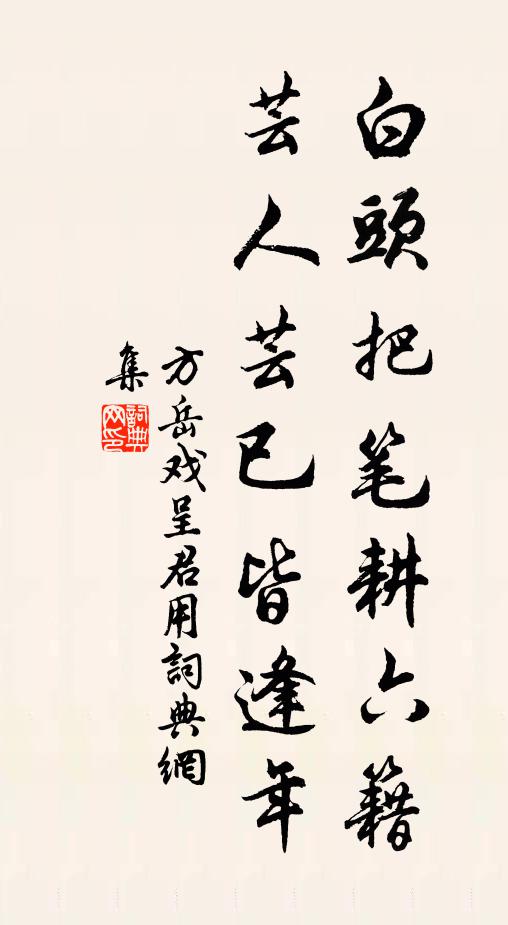 白頭把笔耕六籍
芸人芸已皆逢年
方岳戏呈君用詞典網
集
詞典网印